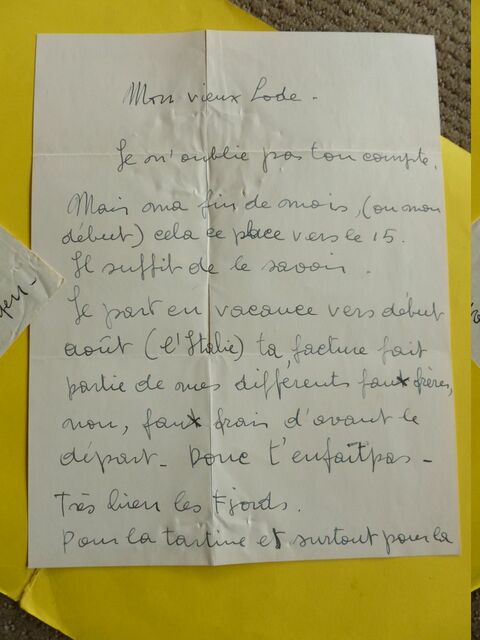 Mon vieux Lode.
Je n'oublie pas ton compte.
Mais ma fin de mois, (ou mon
début) cela ce place vers le 15.
Il suffit de le savoir.
Je part en vacance vers début
août (l'Italie) ta facture fait
partie de mes différents faux frères,
non, faux frais d'avant le
départ - Donc t'enfaitpas -
Très bien les Fjords.
Pour la tartine et surtout pour la